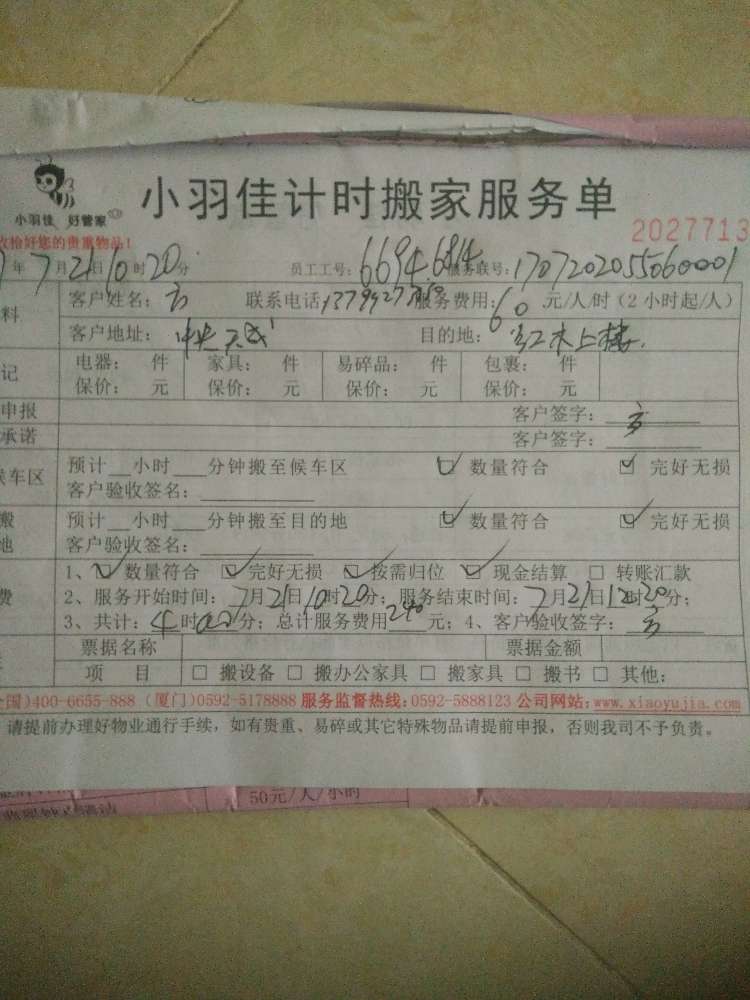 小羽佳计时搬家服务单
小羽佳 好管家
2027713
收拾好您的贵重物品！
年7月21日10时20分 员工工号：6694 6814 服务联号：1707202055060001
料 客户姓名： 联系电话 服务费用：60元/人/时（2小时起/人）
客户地址：中央 目的地：红木上楼
记 电器： 件 家具： 件 易碎品： 件 包裹： 件
保价： 元 保价： 元 保价： 元 保价： 元
申报 客户签字：
承诺 客户签字：
候车区 预计__小时___分钟搬至候车区 ☑数量符合 ☑完好无损
客户验收签名：
搬 预计__小时___分钟搬至目的地 ☑数量符合 ☑完好无损
地 客户验收签名：
1、☑数量符合 ☑完好无损 ☑按需归位 ☑现金结算 □转账汇款
费 2、服务开始时间：7月21日10时20分；服务结束时间：7月21日12时20分；
3、共计：4时00分；总计服务费用240元；4、客户验收签字：
票据名称 票据金额
项 目 □搬设备 □搬办公家具 □搬家具 □搬书 □其他：
全国)400-6655-888 (厦门)0592-5178888 服务监督热线：0592-5888123 公司网站：www.xiaoyujia.com
请提前办理好物业通行手续，如有贵重、易碎或其它特殊物品请提前申报，否则我司不予负责。
50元/人/小时